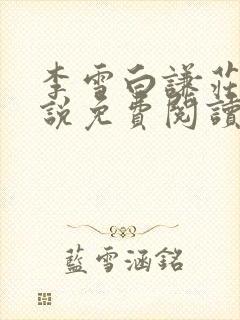 李雪白謙莊
說免費閱讀
藍雪涵銘